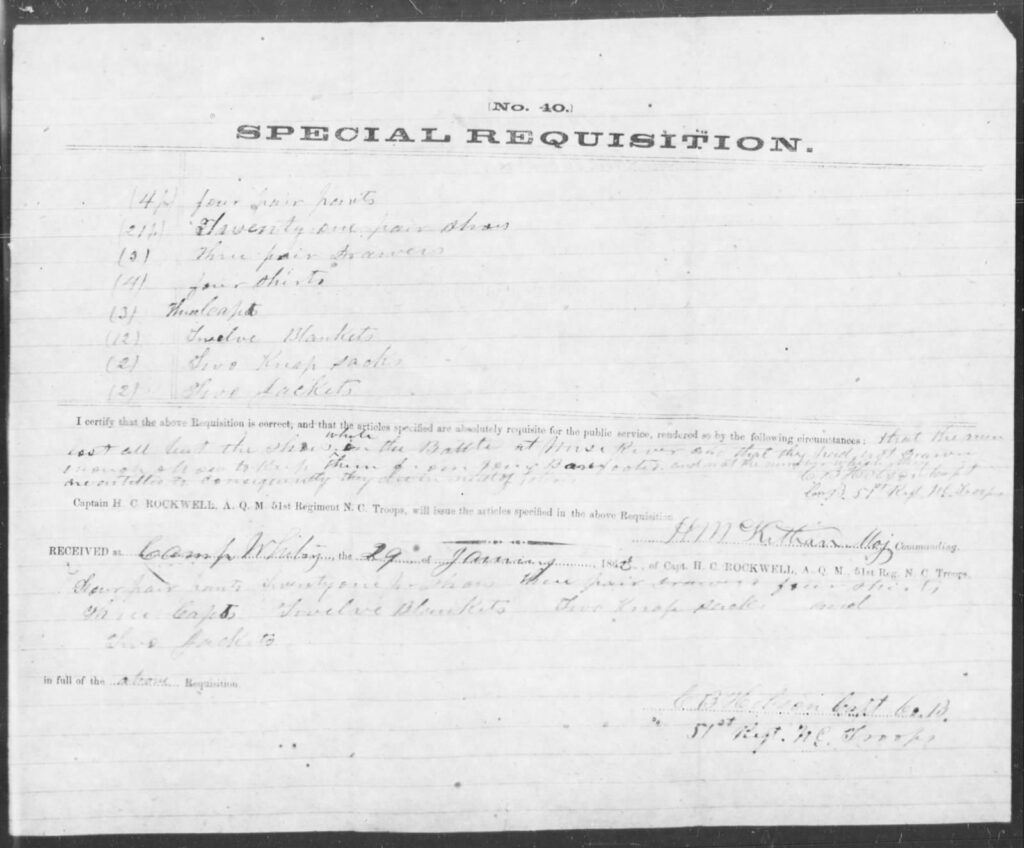 (No. 40.)
SPECIAL REQUISITION.
(4p) four pair pants
(21p) Twenty one pair shoes
(3) three pair Drawers
(4) four shirts
(3) Three Capts
(12) Twelve Blankets
(2) Two Knap sacks
(2) Two Jackets
I certify that the above Requisition is correct; and that the articles specified are absolutely requisite for the public service, rendered so by the following circumstances: that the men
lost all but the shoes while in the Battle at Nuse River and that they had not drawn
enough shoes to keep them from going Barefooted and not the number which they
are entitled to consequently they are in need of
Capt
Co. B, 51st Regt. N C Troops
Captain H. C. ROCKWELL, A. Q. M. 51st Regiment N. C. Troops, will issue the articles specified in the above Requisition
Maj Commanding.
RECEIVED at Camp the 29 of January, 186 of Capt. H. C. ROCKWELL, A. Q. M., 51st Reg. N. C. Troops,
Four pair pants Twenty one pr shoes three pair drawers four shirts
Three Capts Twelve Blankets Two Knap sacks and
Two Jackets
in full of the above Requisition.
Capt Co. B.
51st Regt. N C. Troops